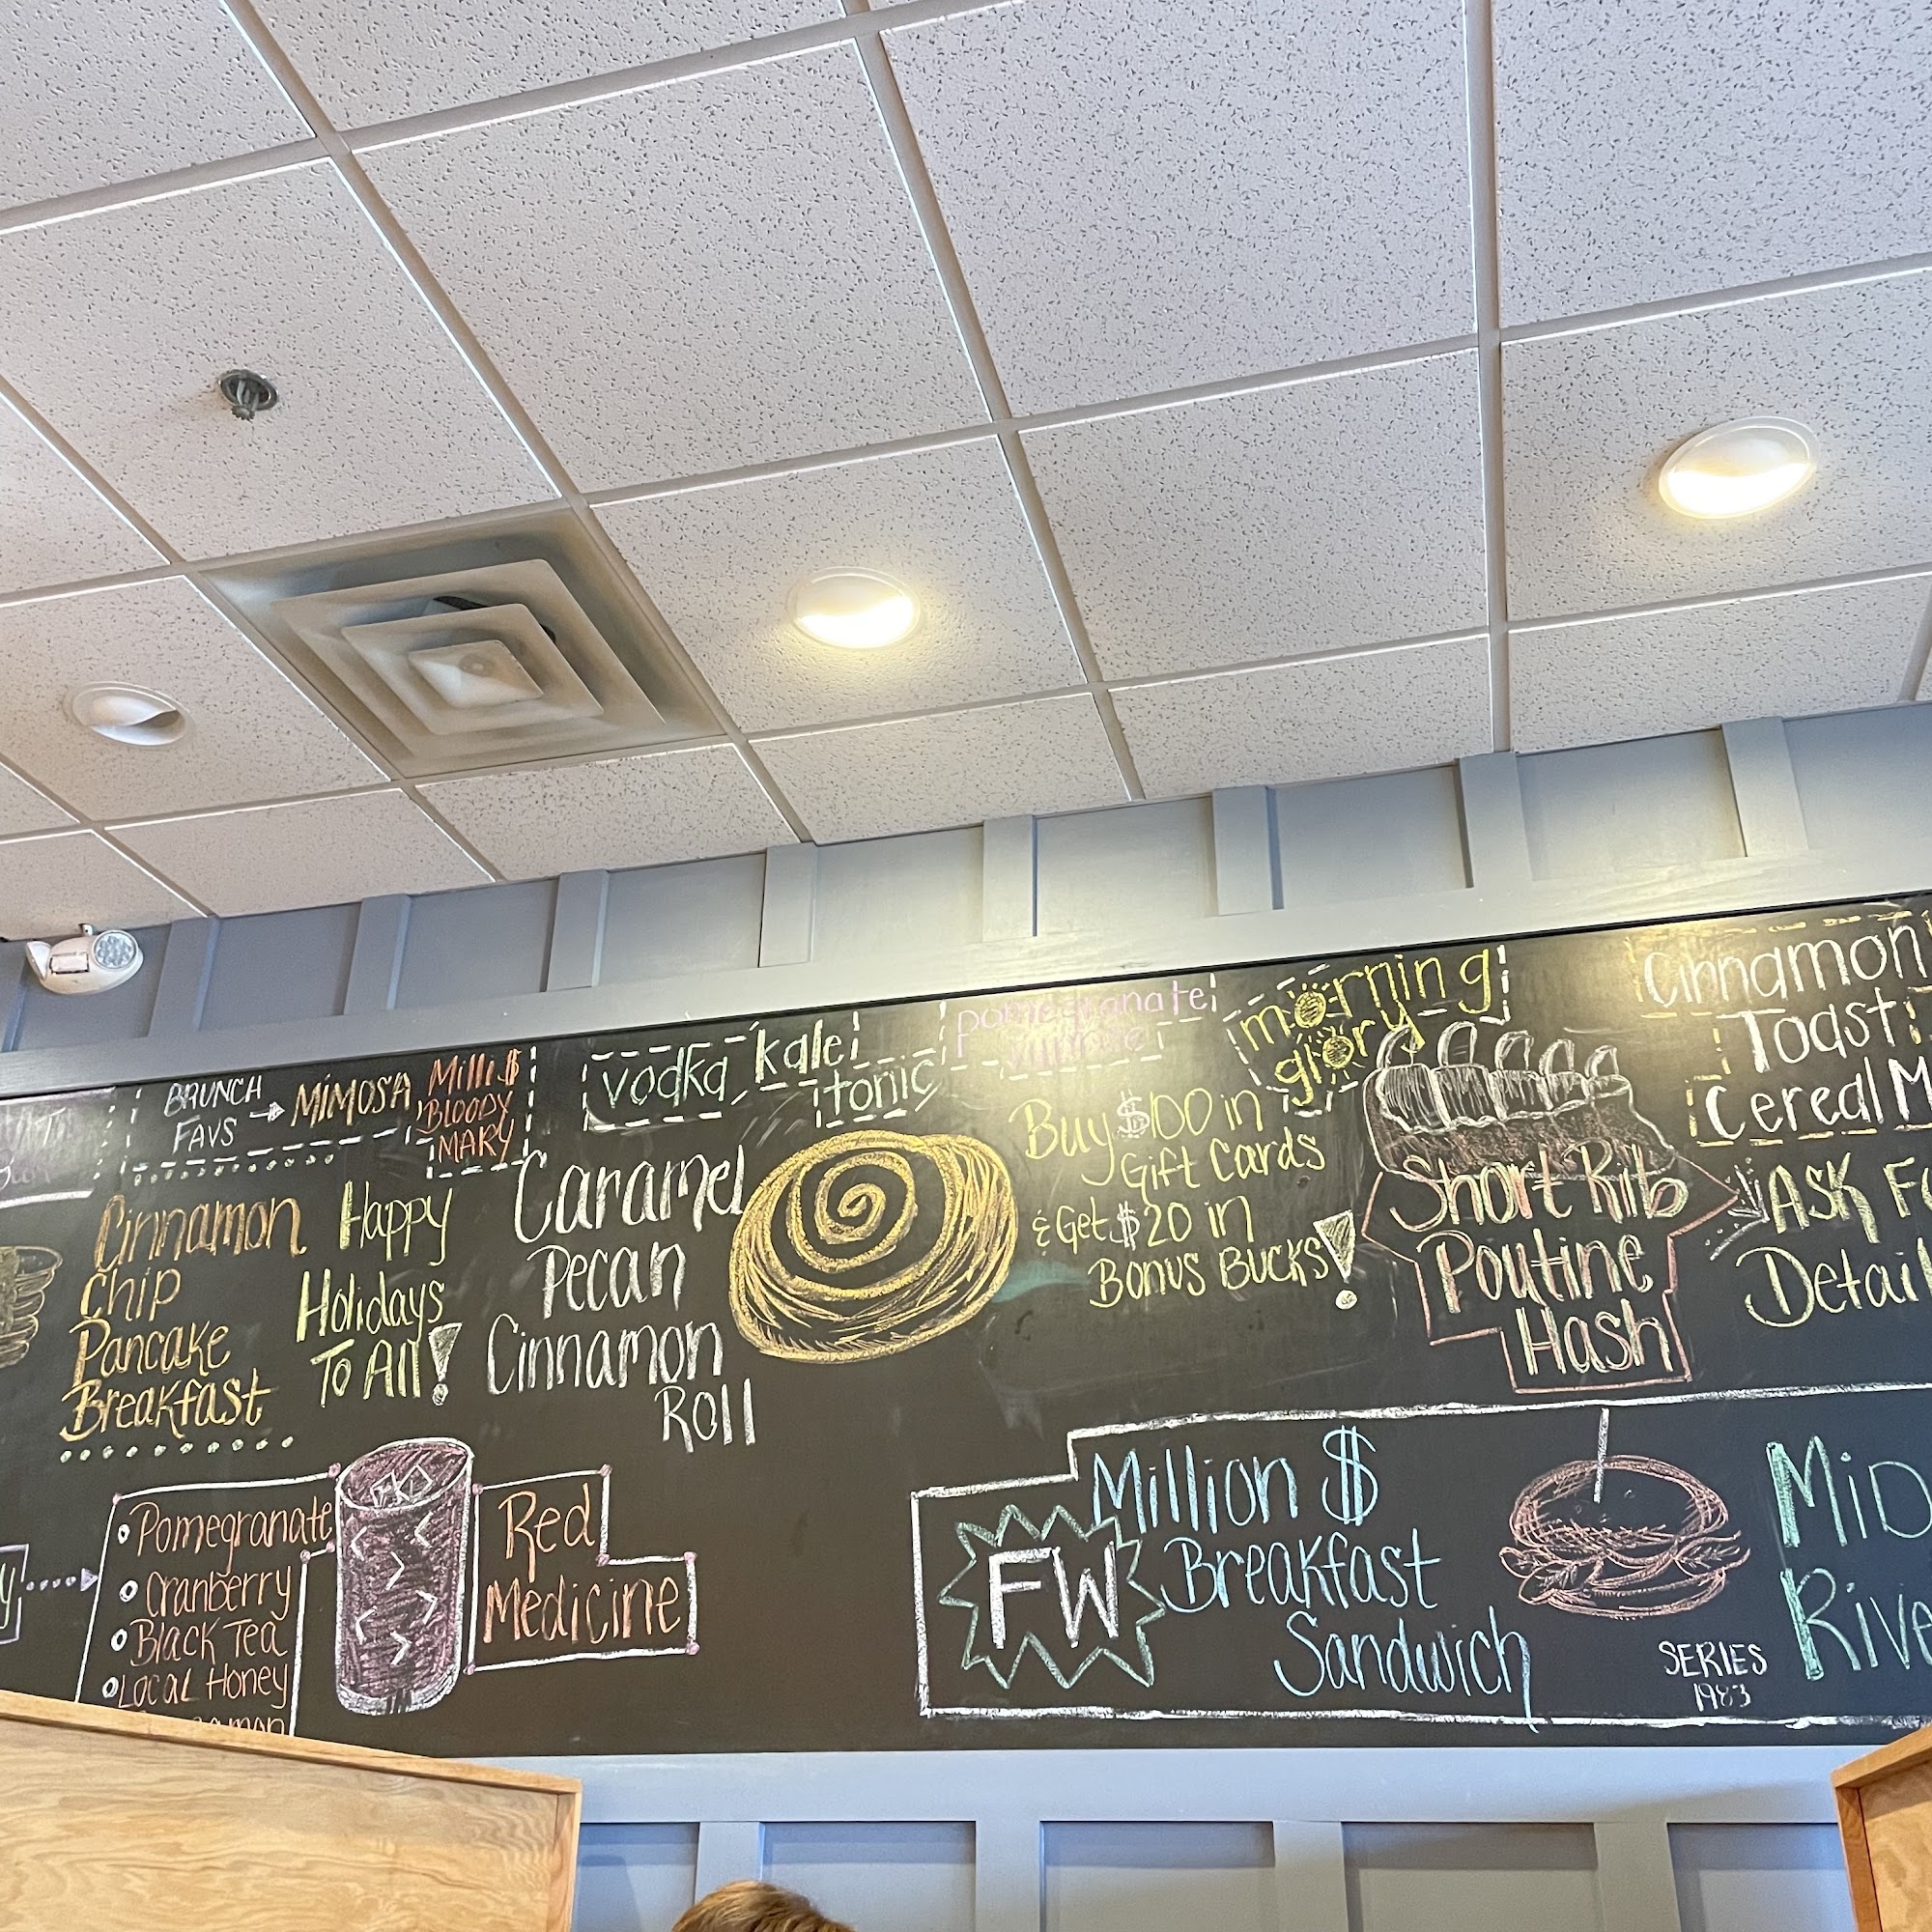 BRUNCH
FAVS
MIMOSA
Milli$
BLOODY
MARY
vodka kale
tonic
pomegranate
morning
glory
Cinnamon
Toast
Cereal M
Cinnamon
Chip
Pancake
Breakfast
Happy
Holidays
To All!
Caramel
Pecan
Cinnamon
Roll
Buy $100 in
Gift Cards
& Get $20 in
Bonus Bucks!
Short Rib
Poutine
Hash
Ask Fo
Detail
Pomegranate
Cranberry
Black Tea
Local Honey
Red
Medicine
FW
Million $
Breakfast
Sandwich
SERIES
1983
Mid
Rive